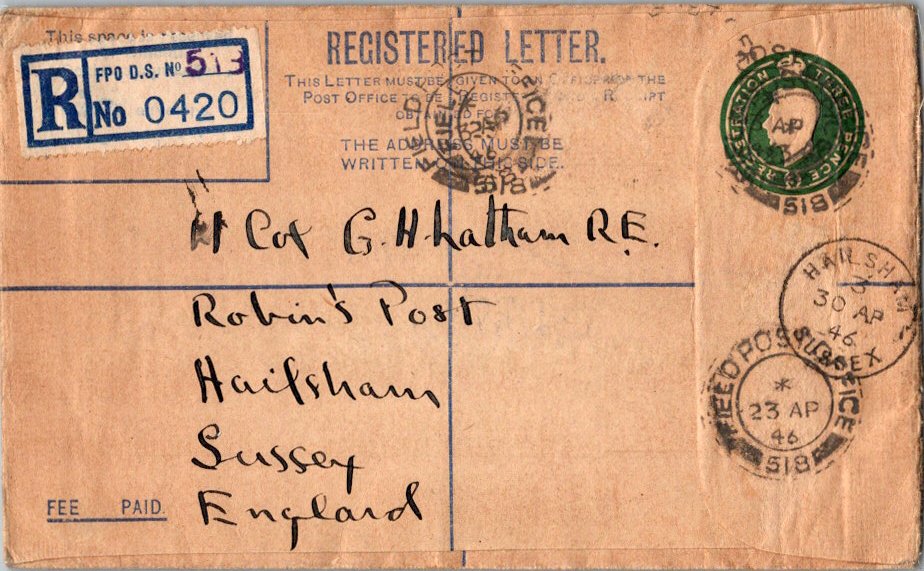 This space
REGISTERED LETTER.
THIS LETTER MUST BE GIVEN TO AN OFFICER OF THE
POST OFFICE TO BE REGISTERED AND A RECEIPT
OBTAINED FOR IT.
THE ADDRESS MUST BE
WRITTEN ON THIS SIDE.
R
FPO D.S. No 513
No 0420
FIELD POST OFFICE
46
518
REGISTRATION THREE PENCE
AP
518
Lt Col G.H. Latham R.E.
Robin's Post
Hailsham
Sussex
England
HAILSHAM
3
30 AP
46
SUSSEX
FIELD POST OFFICE
*
23 AP
46
518
FEE PAID.